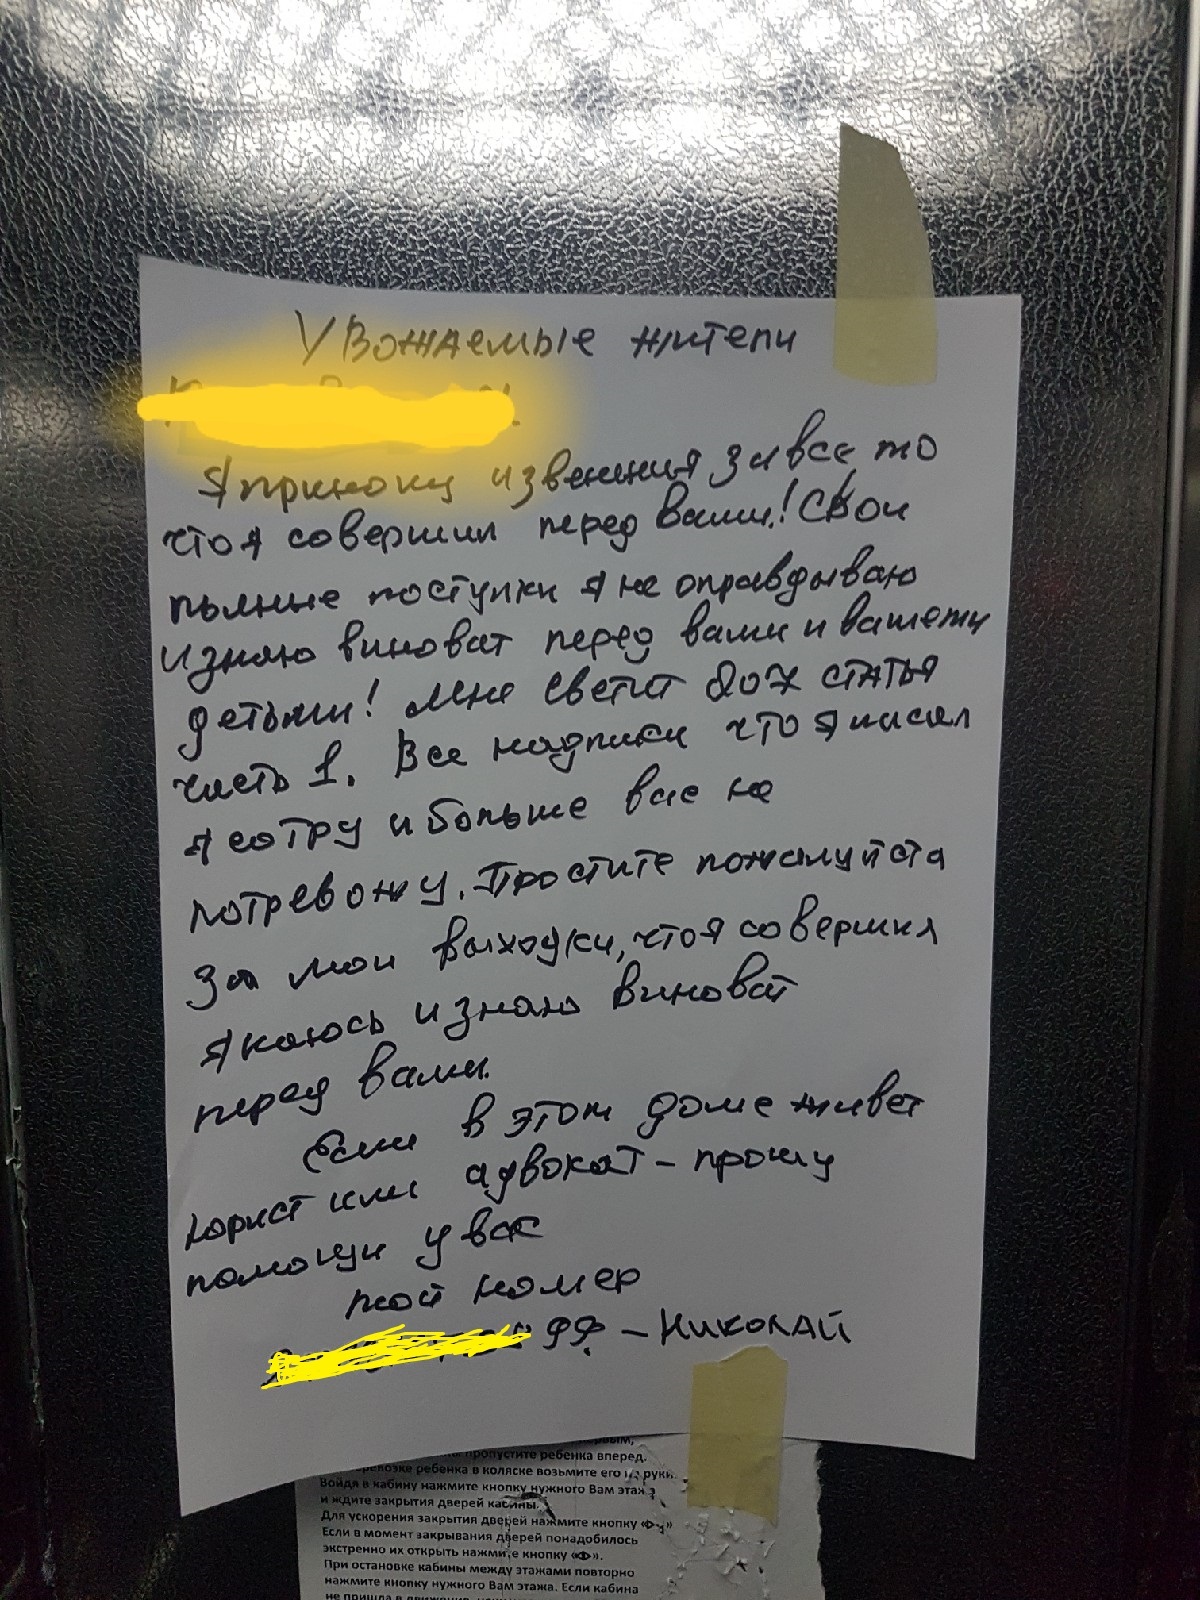 Увожаемые жители
Я приношу извенения за все то
что я совершил перед вами! Свои
пьяные поступки я не оправдываю
и знаю виноват перед вами и вашеми
детьми! Мне светит 207 статья
часть 1. Все надписи что я писал
я сотру и больше вас не
потревожу. Простите пожалуйста
за мои выходки, что я совершил
я каюсь и знаю виноват
перед вами.
Если в этом доме живет
юрист или адвокат – прошу
помощи у вас
мой номер
99. – Николай
пропустите ребенка вперед.
ребенка в коляске возьмите его на руки.
Войдя в кабину нажмите кнопку нужного Вам этажа
и ждите закрытия дверей кабины.
Для ускорения закрытия дверей нажмите кнопку «
Если в момент закрывания дверей понадобилось
экстренно их открыть нажмите кнопку «».
При остановке кабины между этажами повторно
нажмите кнопку нужного Вам этажа. Если кабина
не пришла в движение,